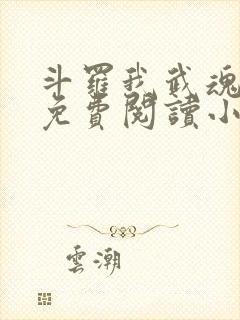 斗羅我武魂
免費閱讀小
雲潮